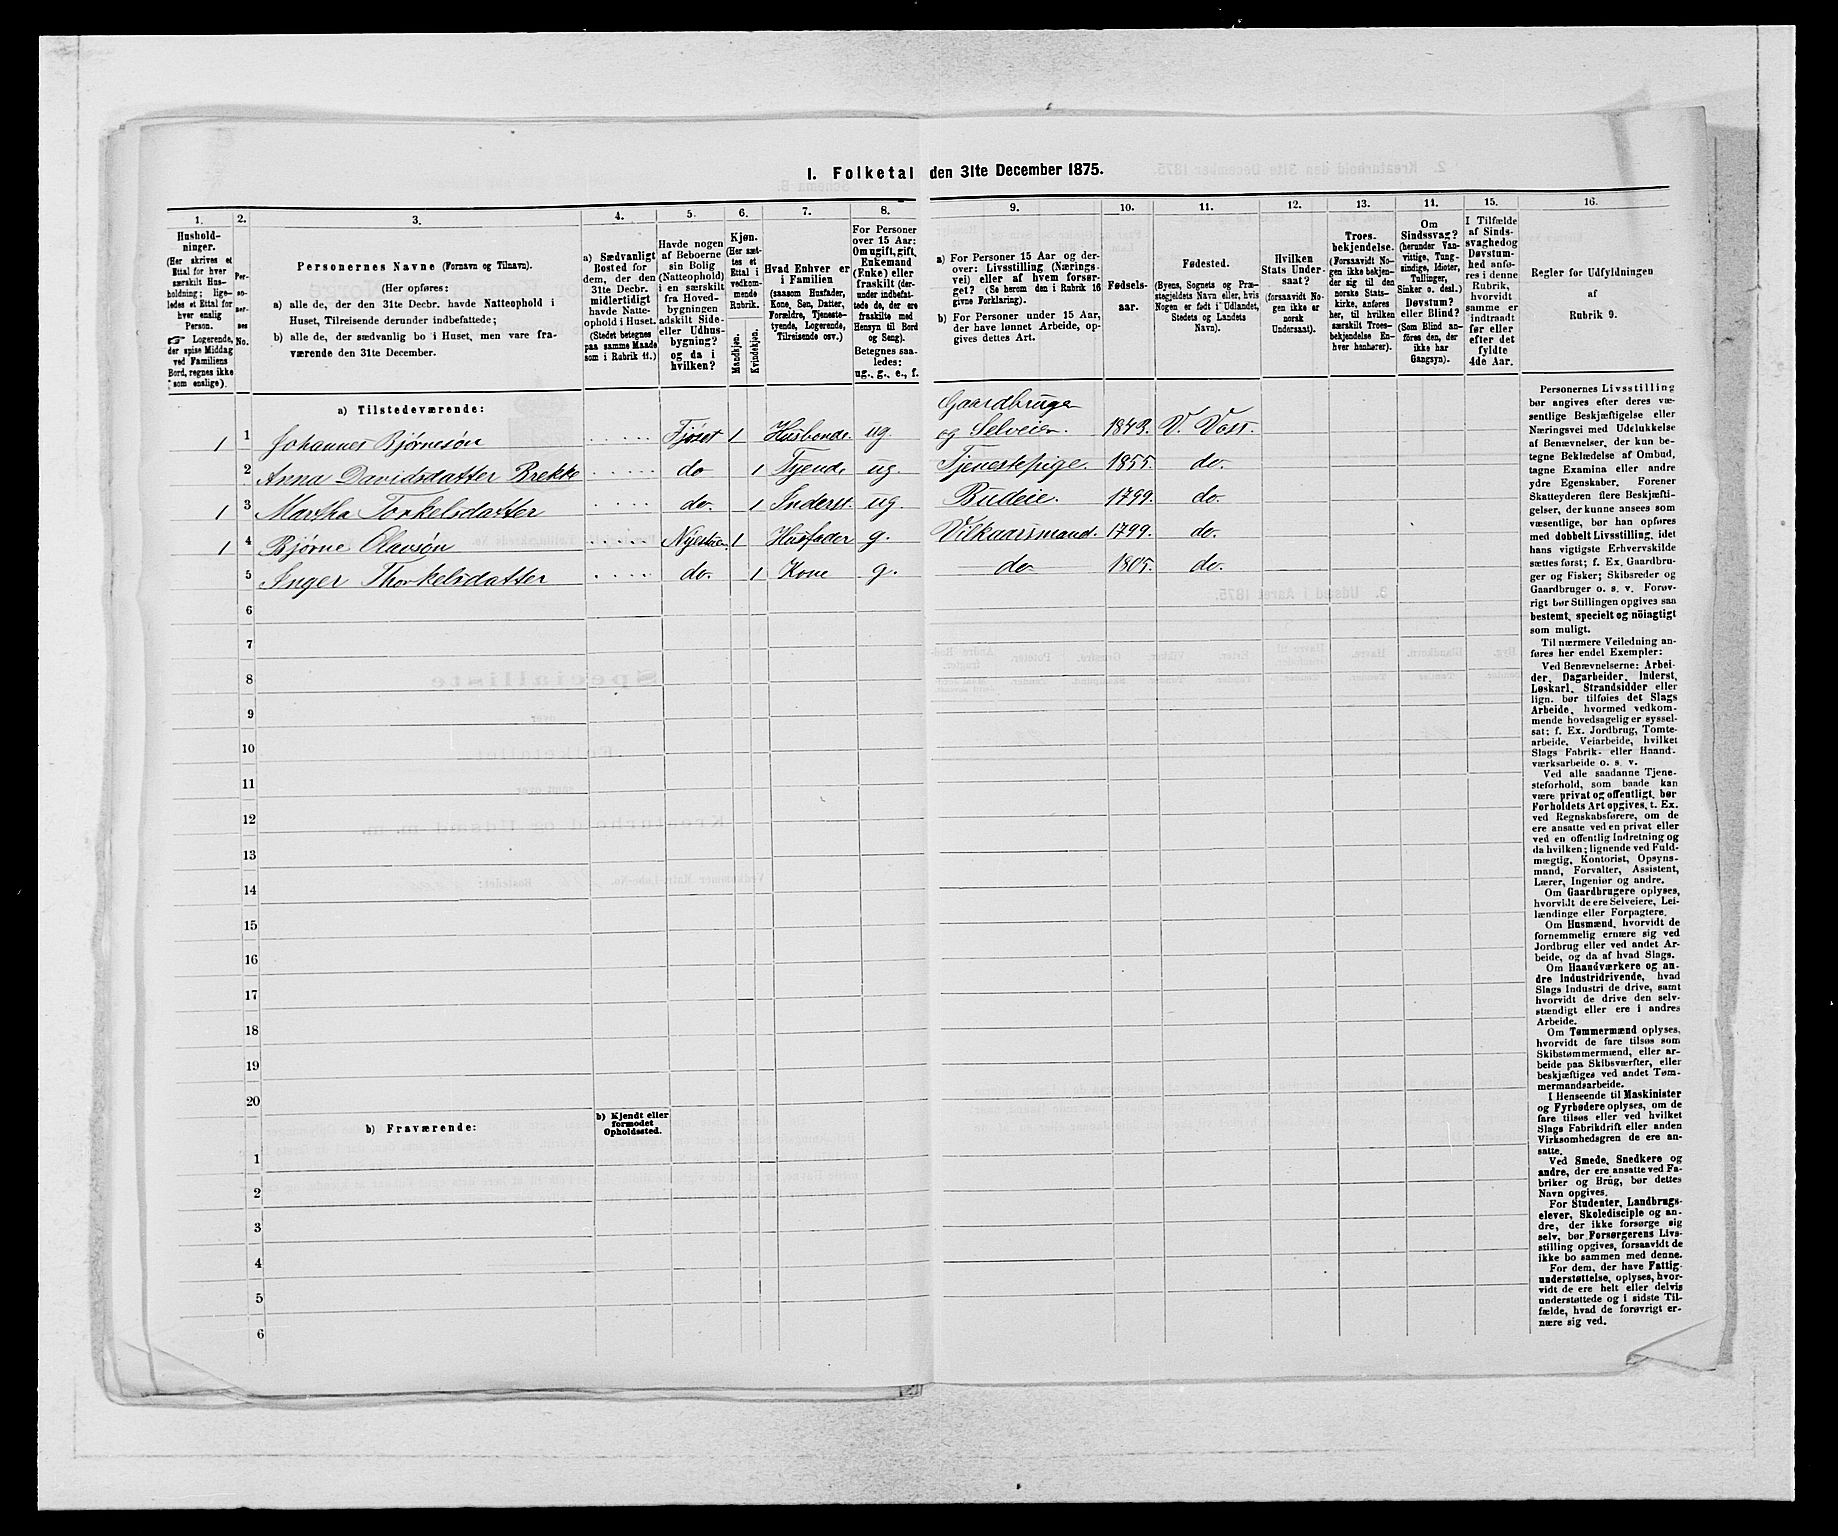 I. Folketal den 31te December 1875.
1. 2. 3. 4. 5. 6. 7. 8. 9. 10. 11. 12. 13. 14. 15. 16.
Hushold-
ninger.
(Her skrives et
Ettal for hver
særskilt Hus-
holdning; lige-
ledes et Ettal for
hver enslig
Person.
☞ Logerende,
der spise Middag
ved Familiens
Bord, regnes ikke
som enslige).
Per-
so-
ner-
nes
No.
Personernes Navne (Fornavn og Tilnavn).
(Her opføres:
a) alle de, der den 31te Decbr. havde Natteophold i
Huset, Tilreisende derunder indbefattede;
b) alle de, der sædvanlig bo i Huset, men vare fra-
værende den 31te December.
a) Sædvanligt
Bosted for
dem, der den
31te Decbr.
midlertidigt
havde Natte-
ophold i Huset.
(Stedet betegnes
paa samme Maade
som i Rubrik 11.)
Havde nogen
af Beboerne
sin Bolig
(Natteophold)
i en særskilt
fra Hoved-
bygningen
adskilt Side-
eller Udhus-
bygning?
og da i
hvilken?
Kjøn.
(Her sæt-
tes et
Ettal i
vedkom-
mende
Rubrik.
Mandkjøn.
Kvindekjøn.
Hvad Enhver er
i Familien
(saasom Husfader,
Kone, Søn, Datter,
Forældre, Tjeneste-
tyende, Logerende,
Tilreisende osv.)
For Personer
over 15 Aar:
Om ugift, gift,
Enkemand
(Enke) eller
fraskilt (der-
under indbefat-
tede de, der ere
fraskilte med
Hensyn til Bord
og Seng).
Betegnes saa-
ledes:
ug., g., e., f.
a) For Personer 15 Aar og der-
over: Livsstilling (Nærings-
vei) eller af hvem forsør-
get? (Se herom den i Rubrik 16
givne Forklaring).
b) For Personer under 15 Aar,
der have lønnet Arbeide, op-
gives dettes Art.
Fødsels-
aar.
Fødested.
(Byens, Sognets og Præ-
stegjeldets Navn eller, hvis
Nogen er født i Udlandet,
Stedets og Landets
Navn).
Hvilken
Stats Under-
saat?
(forsaavidt No-
gen ikke er
norsk
Undersaat).
Troes-
bekjendelse.
(Forsaavidt No-
gen ikke bekjen-
der sig til den
norske Stats-
kirke, anføres
her, til hvilken
særskilt Troes-
bekjendelse En-
hver henhører).
Om
Sindssvag?
(herunder Van-
vittige, Tung-
sindige, Idioter,
Tullinger,
Sinker o. desl.)
Døvstum?
eller Blind?
(Som Blind an-
føres den, der
ikke har
Gangsyn).
I Tilfælde
af Sinds-
svaghed og
Døvstum-
hed anfø-
res i denne
Rubrik,
hvorvidt
samme er
indtraadt
før eller
efter det
fyldte
4de Aar.
Regler for Udfyldningen
af
Rubrik 9.
a) Tilstedeværende:
1 1 Johannes Bjørnesøn Fjøset 1 Husbonde ug. Gaardbruger og Selveier. 1843. V. Voss.
2 Anna Davidsdatter Brekke do 1 Tyende ug. Tjenestepige. 1855. do.
1 3 Martha Torkelsdatter do. 1 Inderst. ug. Budeie. 1799. do.
1 4 Bjørne Olavsøn Nyestuen 1 Husfader g. Vilkaarsmand. 1799. do.
5 Inger Thorkelsdatter do. 1 Kone g. do 1805. do.
6
7
8
9
10
11
12
13
14
15
16
17
18
19
20
b) Fraværende:
b) Kjendt eller
formodet
Opholdssted.
1
2
3
4
5
6
Personernes Livsstilling
bør angives efter deres væ-
sentlige Beskjæftigelse eller
Næringsvei med Udelukkelse
af Benævnelser, der kun be-
tegne Beklædelse af Ombud,
tagne Examina eller andre
ydre Egenskaber. Forener
Skatteyderen flere Beskjæfti-
gelser, der kunne ansees som
væsentlige, bør han opføres
med dobbelt Livsstilling, idet
hans vigtigste Erhvervskilde
sættes først; f. Ex. Gaardbru-
ger og Fisker; Skibsreder og
Gaardbruger o. s. v. Forøv-
rigt bør Stillingen opgives saa
bestemt, specielt og nöiagtigt
som muligt.
Til nærmere Veiledning an-
føres her endel Exempler:
Ved Benævnelserne: Arbei-
der, Dagarbeider, Inderst,
Løskarl, Strandsidder eller
lign. bør tilføies det Slags
Arbeide, hvormed vedkom-
mende hovedsagelig er syssel-
sat; f. Ex. Jordbrug, Tomte-
arbeide, Veiarbeide, hvilket
Slags Fabrik- eller Haand-
værksarbeide o. s. v.
Ved alle saadanne Tjene-
steforhold, som baade kan
være privat og offentligt, bør
Forholdets Art opgives, t. Ex.
ved Regnskabsførere, om de
ere ansatte ved en privat eller
ved en offentlig Indretning og
da hvilken; lignende ved Fuld-
mægtig, Kontorist, Opsyns-
mand, Forvalter, Assistent,
Lærer, Ingeniør og andre.
Om Gaardbrugere oplyses,
hvorvidt de ere Selveiere, Lei-
lændinge eller Forpagtere.
Om Husmænd, hvorvidt de
fornemmelig ernære sig ved
Jordbrug eller ved andet Ar-
beide, og da af hvad Slags.
Om Haandværkere og an-
dre Industridrivende, hvad
Slags Industri de drive, samt
hvorvidt de drive den selv-
stændigt eller ere i andres
Arbeide.
Om Tømmermænd oplyses,
hvorvidt de fare tilsøs som
Skibstømmermænd, eller ar-
beide paa Skibsværfter, eller
beskjæftiges ved andet Tøm-
mermandsarbeide.
I Henseende til Maskinister
og Fyrbødere oplyses, om de
fare tilsøs eller ved hvilket
Slags Fabrikdrift eller anden
Virksomhedsgren de ere an-
satte.
Ved Smede, Snedkere og
andre, der ere ansatte ved Fa-
briker og Brug, bør dettes
Navn opgives.
For Studenter, Landbrugs-
elever, Skoledisciple og an-
dre, der ikke forsørge sig
selv, bør Forsørgerens Livs-
stilling opgives, forsaavidt de
ikke bo sammen med denne.
For dem, der have Fattig-
understøttelse, oplyses, hvor-
vidt de ere helt eller delvis
understøttede og i sidste Til-
fælde, hvad de forøvrigt er-
nære sig ved.